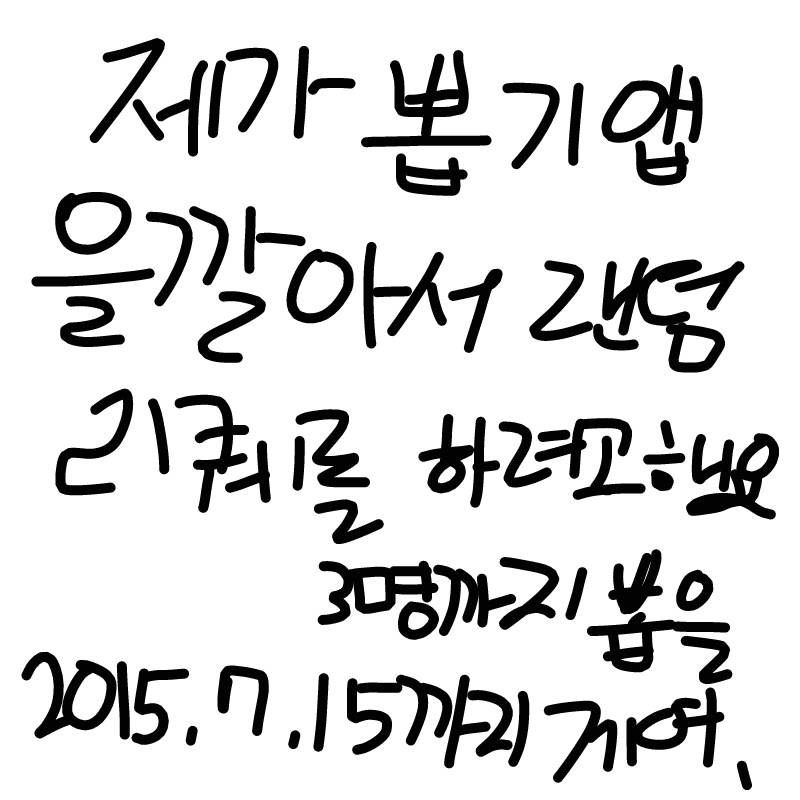 제가 뽑기앱
을깔아서 랜덤
리퀘를 하려고해요
3명까지 뽑을
2015.7.15까지